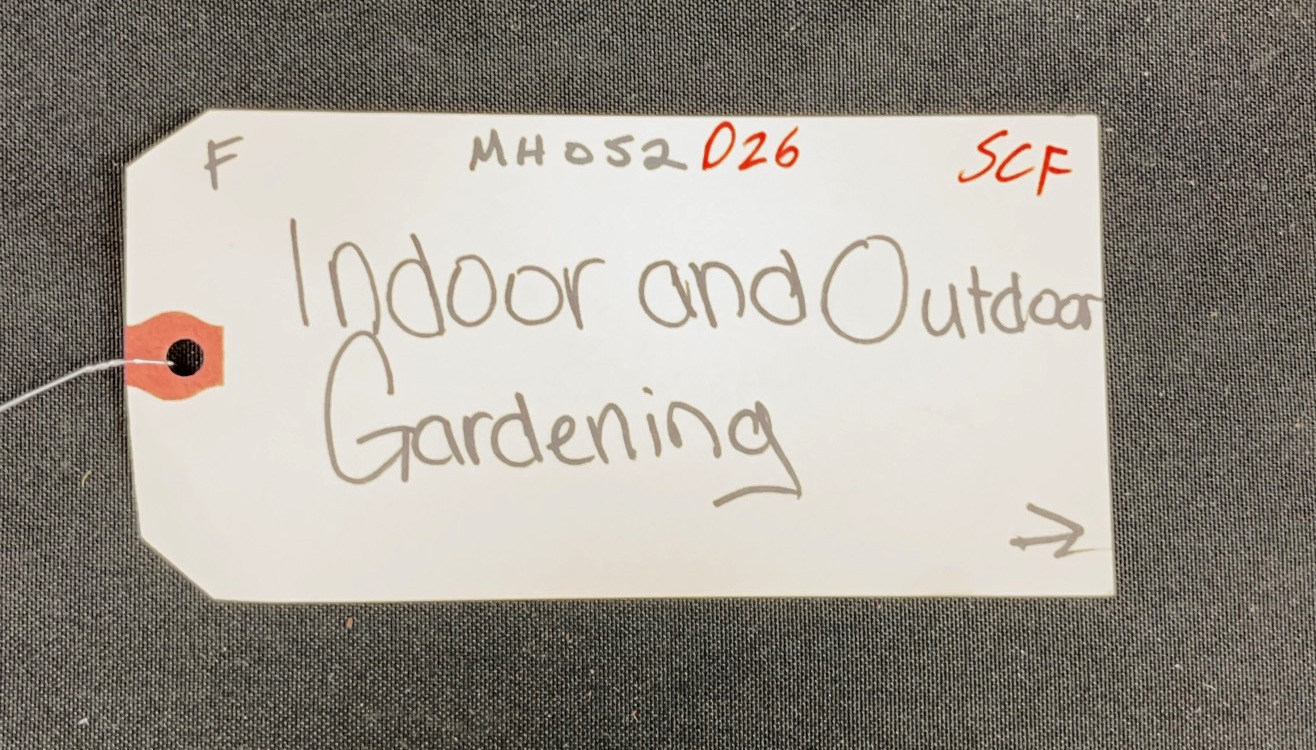 F MH052 D26 SCF
Indoor and Outdoor
Gardening
→